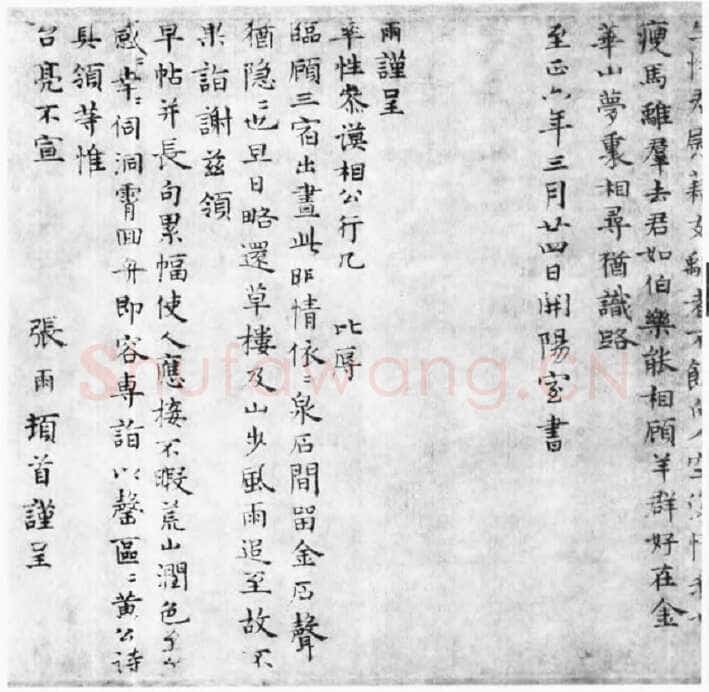 瘦馬離羣去君如伯樂能相顧羊群好在金
華山夢裏相尋猶識路
至正六年三月廿四日開陽室書
雨謹呈
率性恭謨相公行几 比辱
臨顧三宿出晝此即情依〻泉石間留金石聲
猶隱〻也旦日略還草樓及山步風雨追至故不
果詣謝茲領
早帖并長句累幅使人應接不暇荒山潤色多矣
感〻幸〻伺洞霄回舟即容專詣以罄區〻黃公詩
具領等惟
台亮不宣
張雨頓首謹呈
Shufawang.CN